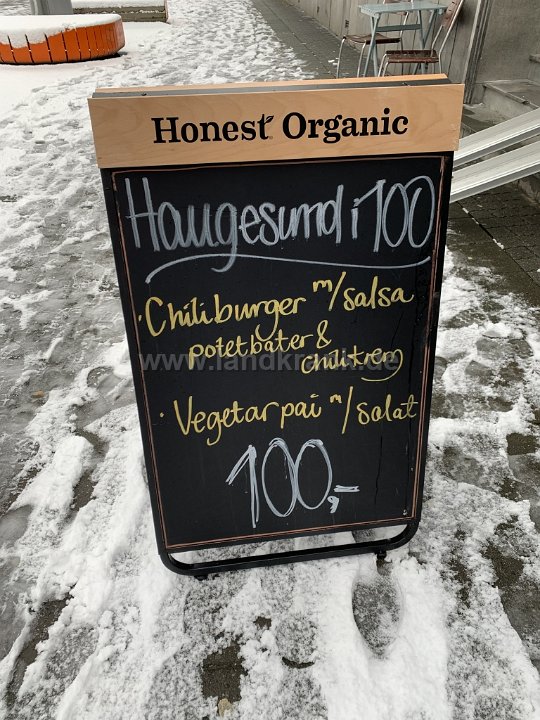 Honest Organic
Haugesund i 100
· Chiliburger m/salsa
potetbåter &
chilikrem
www.landkrafik.de
· Vegetarpai m/salat
100,-